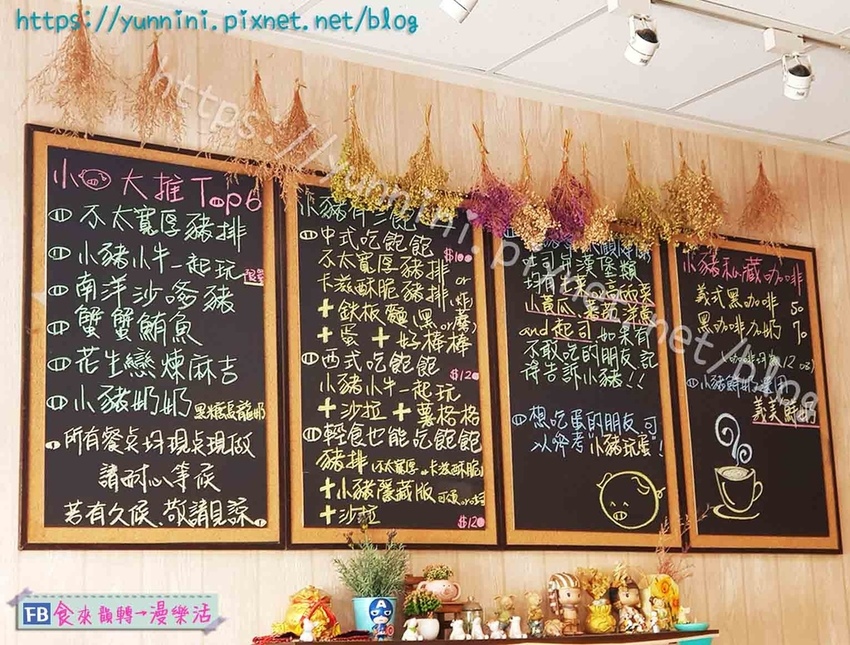 https://yunnini.pixnet.net/blog
https://yunnini.pixnet.net/blog
小 大推Top6
不太寬厚豬排
小豬小牛一起玩
南洋沙嗲豬
蟹蟹鮪魚
花生戀煉麻吉
小豬奶奶 黑糖烏龍奶
所有餐桌均現桌現做
請耐心等候
若有久候、敬請見諒
小豬有三飽
中式吃飽飽
不太寬厚豬排 or
卡滋酥脆豬排(炸)
+鉄板麵(黑or蘑)
+蛋 + 好棒棒
西式吃飽飽 $120
小豬小牛一起玩
+沙拉 + 薯格格
輕食也能吃飽飽
豬排(不太寬厚or卡滋酥脆)
+小豬隱藏版
+沙拉 $120
吐司與漢堡類
均有
小黃瓜、蕃茄、洋蔥
and起司 如果有
不敢吃的朋友記
得告訴小豬!!
想吃蛋的朋友、可
以參考 小豬玩蛋!
小豬私藏咖啡
義式黑咖啡 50
黑咖啡加奶 70
(咖啡均為12oz)
小豬鮮奶選用
義美鮮奶
FB 食來韻轉→漫樂活